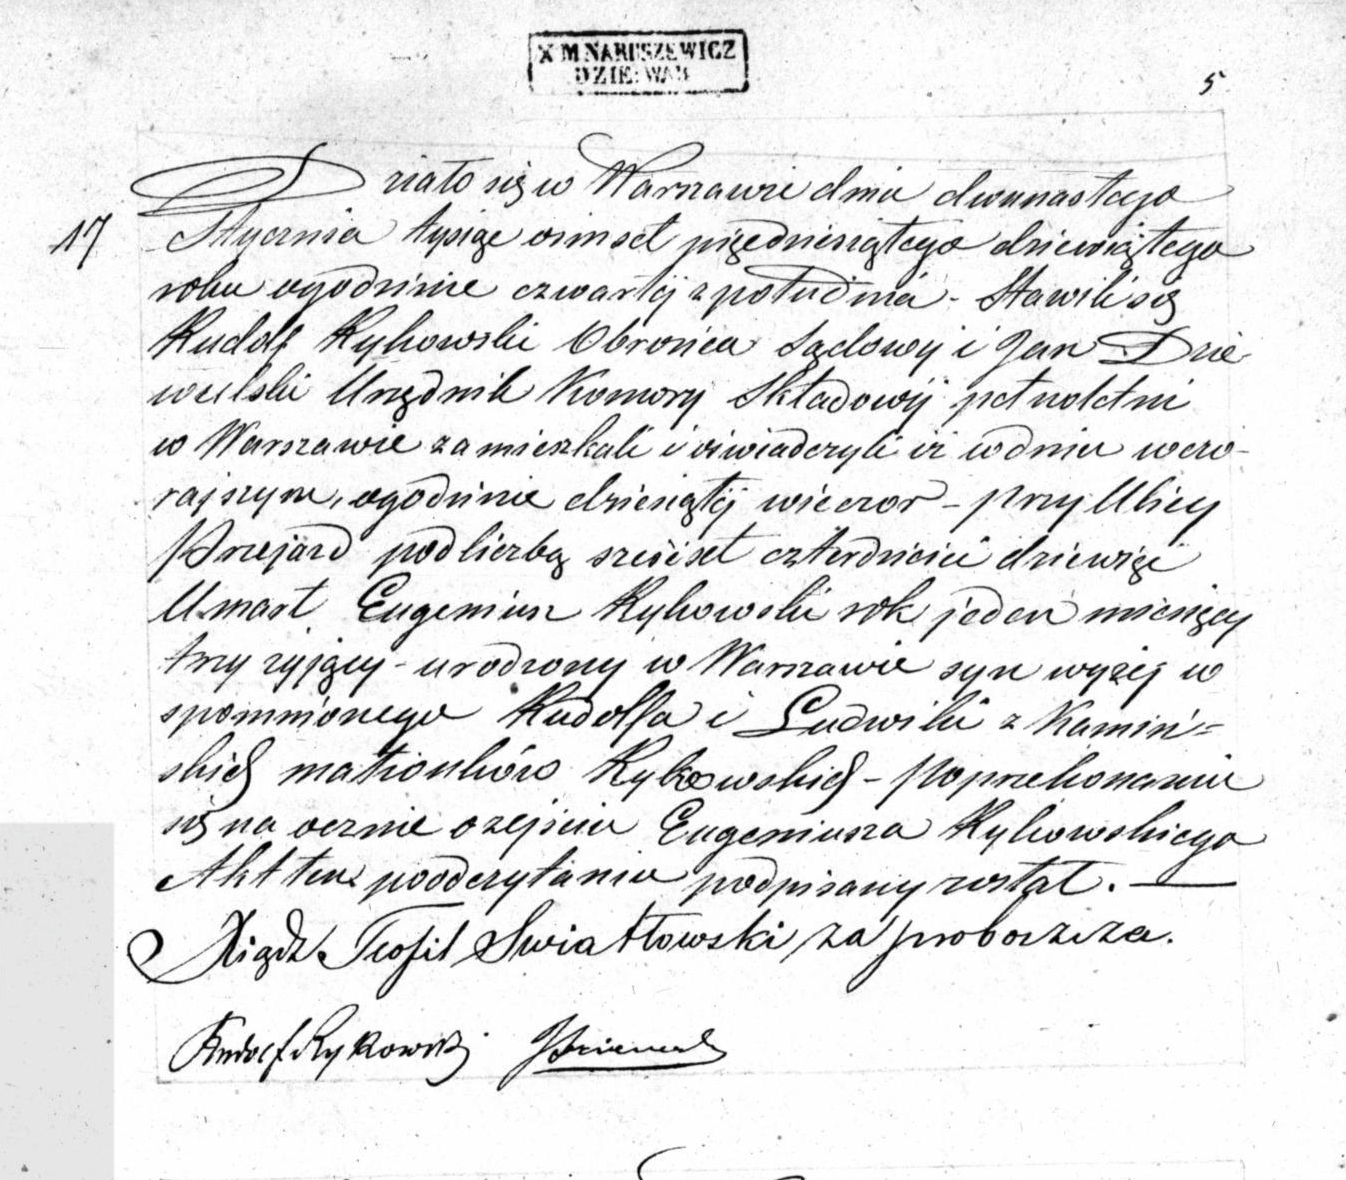 X M NARUSZEWICZ
DZIE: WAR
5
17
Działo się w Warszawie dnia dwunastego
Stycznia tysiąc osmset pięćdziesiątego dziewiątego
roku ogodzinie czwartéj z południa - Stawili się
Rudolf Rykowski Obrońca Sądowy i Jan Dzie-
wulski Urzędnik Komory Składowéj pełnoletni
w Warszawie zamieszkali i oświadczyli iż wdniu wczo-
rajszym, ogodzinie dziesiątéj wieczor - przy Ulicy
Przejazd podliczbą sześćset czterdzieści dziewięć
Umarł Eugeniusz Rykowski rok jeden miesięcy
trzy żyjący - urodzony w Warszawie syn wyżéj w
spomnionego Rudolfa i Ludwiki z Kamiń=
skich małżonków Rykowskich - Poprzekonaniu
się na ocznie ozejściu Eugeniusza Rykowskiego
Akt ten poodczytaniu podpisany został. —
Xiądz Teofil Swiatłowski za proboszcza.
Rudolf Rykowski